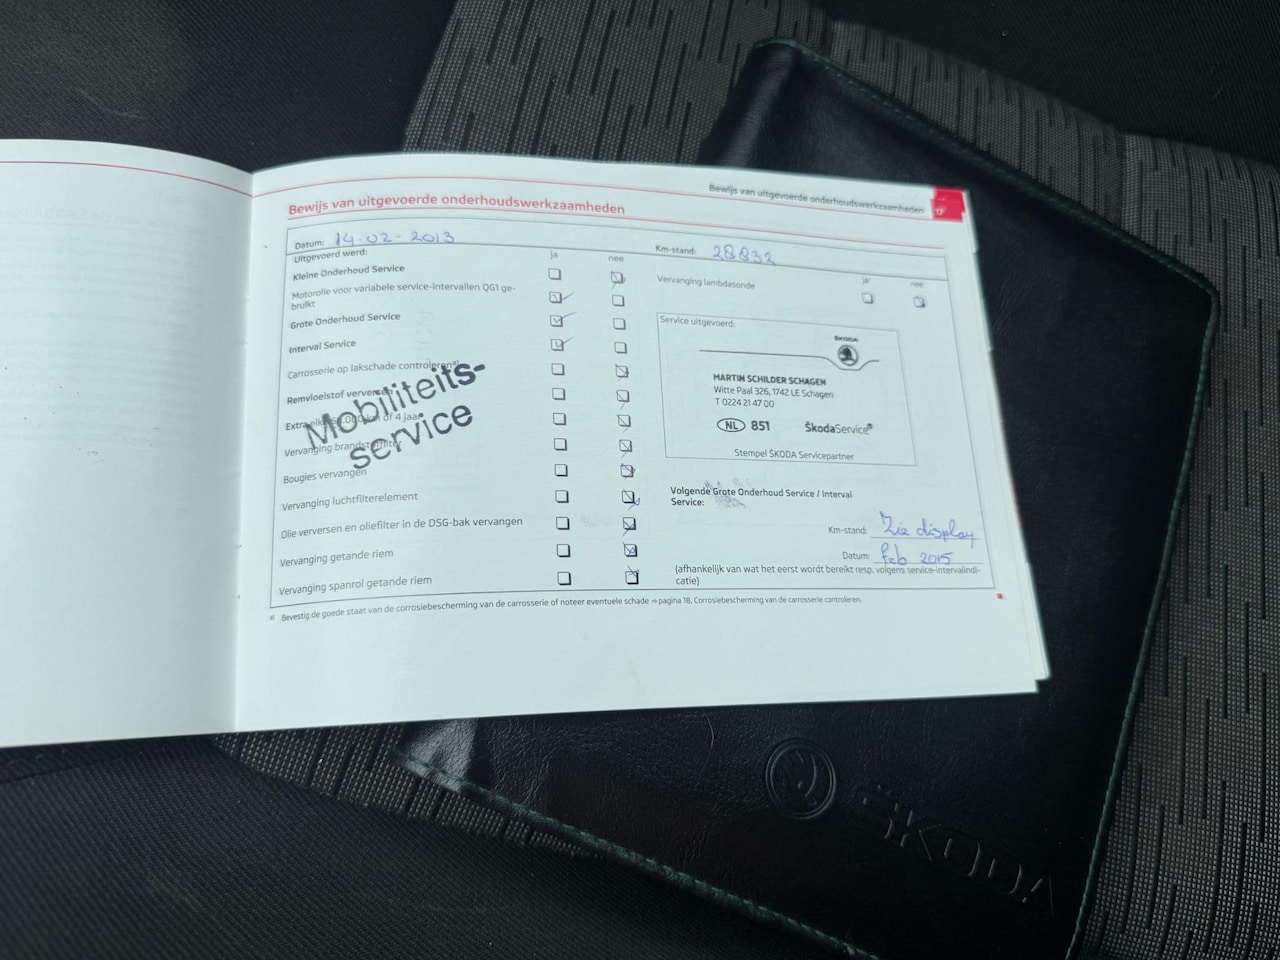 Bewijs van uitgevoerde onderhoudswerkzaamheden
17
Bewijs van uitgevoerde onderhoudswerkzaamheden
Datum: 14-02-2013
Km-stand: 28832
Uitgevoerd werd:
ja
nee
Kleine Onderhoud Service
Motorolie voor variabele service-intervallen QG1 ge-
bruikt
Grote Onderhoud Service
Interval Service
Carrosserie op lakschade controleren a)
Remvloeistof verversen
Extra elke 60.000 km of 4 jaar
Vervanging brandstoffilter
Bougies vervangen
Vervanging luchtfilterelement
Olie verversen en oliefilter in de DSG-bak vervangen
Vervanging getande riem
Vervanging spanrol getande riem
Mobiliteits-
service
ja
nee
Vervanging lambdasonde
Service uitgevoerd:
SKODA
MARTIN SCHILDER SCHAGEN
Witte Paal 326, 1742 LE Schagen
T 0224 21 47 00
NL 851
ŠkodaService
Stempel ŠKODA Servicepartner
Volgende Grote Onderhoud Service / Interval
Service:
Km-stand: Zie display
Datum: feb 2015
(afhankelijk van wat het eerst wordt bereikt resp. volgens service-intervalindi-
catie)
a) Bevestig de goede staat van de corrosiebescherming van de carrosserie of noteer eventuele schade ⇒ pagina 18, Corrosiebescherming van de carrosserie controleren.
ŠKODA